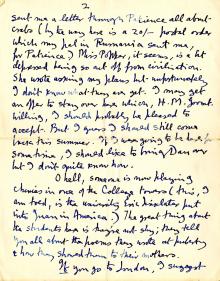 2
sent me a letter through Patience all about
crebs (by the way here is a 20/- postal order
which my pal in Rumania sent me,
for Patience). Miss Potter, it seems, is a bit
depressed being cut off from civilization.
She wrote asking my plans but unfortunately
I don't know what they are yet. I may get
an offer to stay over here which, H.M. Govt.
willing, I should probably be pleased to
accept. But I guess I should still come
back this summer. If I was going to be back for
some time, I should like to bring Dan over
but I don't quite know how.
O hell, someone is now playing
chimes in one of the College towers (this, I
am told, is the university loc
in America.) The great thing about
the students here is they're not shy; they tell
you all about the poems they wrote at puberty
& how they showed them to their mothers.
If you go to London, I suggest